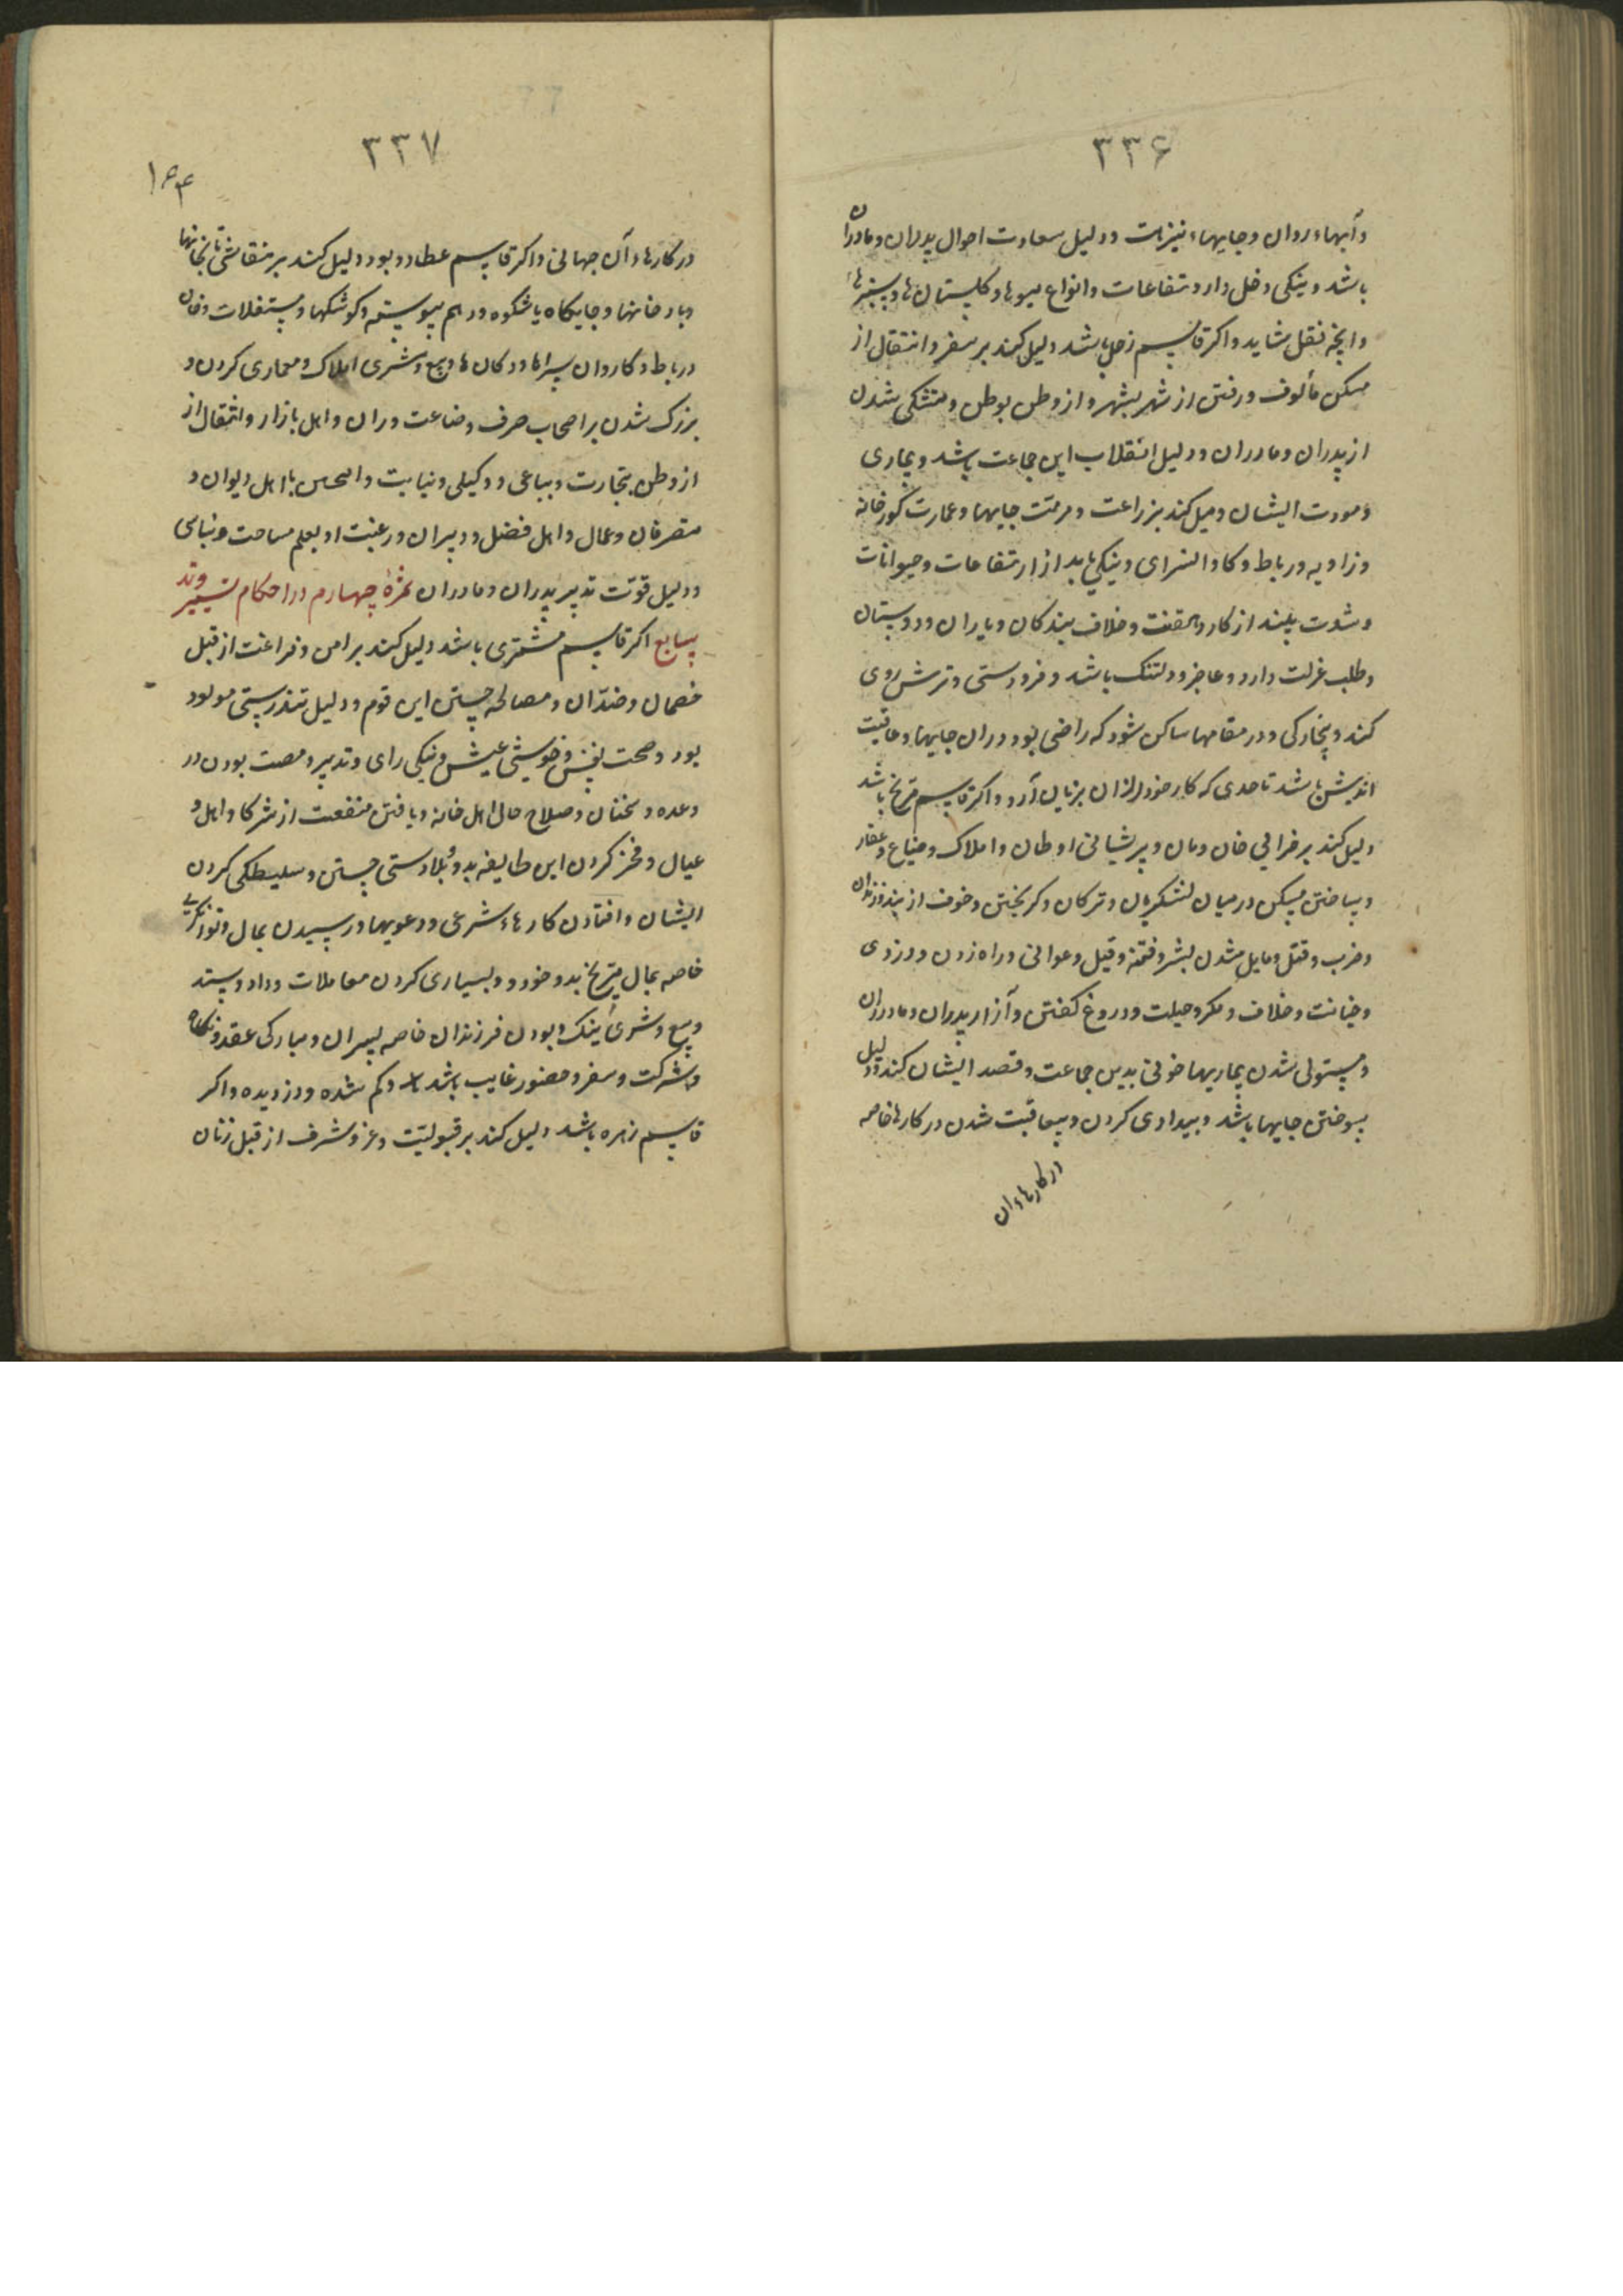 ۳۳۶
وآبهاء روان وجایهاء نیز بات ودلیل سعادت احوال پدران ومادران
باشد ونیکی دخل دارد تفاعات وانواع میوها وکلستان ها وسبزیها
وانچه نقل شاید واکر قاسم زحل باشد دلیل کند بر سفر وانتقال از
مسکن مألوف ورفتن از شهر بشهر واز وطن بوطن ومتشکی شدن
از پدران ومادران ودلیل انقلاب این جماعت باشد وبیماری
ومودت ایشان ومیل کند بزراعت ومرمت جایها وعمارت کورخانه
وزاویه ورباط وکاوانسرای ونیکی یابد از ارتفاعات وحیوانات
وشدت بیند از کار ومقنت وخلاف بیند کان ویاران ودوستان
وطلب عزلت دارد وعاجز ودلتنک باشد وفرودستی وترش روی
کند وبیخارکی ودر مقامها ساکن شود که راضی بود دران جایها وعاقبت
اندیش باشد تا حدی که کار خود را ازان بزیان آرد واکر قاسم مریخ باشد
دلیل کند بر خرابی خان ومان وپریشانی اوطان واملاک وضیاع وعقار
وبساختن مسکن در میان لشکریان وترکان وکریختن وخوف از بند وزندان
وضرب وقتل ومایل شدن بشر وفتنه وقیل وعوانی وراه زدن ودزدی
وخیانت وخلاف ومکر وحیلت ودروغ کفتن وآزار پدران ومادران
ومستولی شدن بیماریها خونی بدین جماعت وقصد ایشان کند ودلیل
سوختن جایها باشد وبیدادی کردن وبیعاقبت شدن در کارها خاصه
در کارهاء ان
۳۳۷
۱۶۴
در کارهاء آن جهانی واکر قاسم عطارد بود دلیل کند بر نقاشی کتابخانها
وبارخانها وجایکاه باشکوه ودر هم پیوسته وکوشکها ومستغلات وخان
ورباط وکاروان سراها ودکان ها وبیع وشری املاک ومعماری کردن و
بزرک شدن بر اصحاب حرف وضاعت وران واهل بازار وانتقال از
از وطن بتجارت وبیاعی ووکیلی ونیابت با اهل دیوان و
متصرفان وعمال واهل فضل ودبیران ورغبت او بعلم مساحت وبنایی
ودلیل قوت تدبیر پدران ومادران ثمرۀ چهارم در احکام تسییر وتد
سابع اکر قاسم مشتری باشد دلیل کند بر امن وفراغت از قبل
خصمان وضدّان ومصالحه جستن این قوم ودلیل تندرستی مولود
بود وصحت نفس وخوشی عیش ونیکی رای وتدبیر ومصیب بودن در
وعده وسخنان وصلاح حال اهل خانه ویافتن منفعت از شرکا واهل و
عیال وفخر کردن این طایفه بدو وبلادستی جستن وسلیطکی کردن
ایشان وافتادن کارهاء شرعی ودعویها ورسیدن بمال وتوانکری
خاصه بمال مریخ بدو خورد وبسیاری کردن معاملات وداد وستد
وبیع وشری نیک وبودن فرزندان خاصه پسران ومبارکی عقد ونکاح
وشرکت وسفر وحضور غایب باشد وکم شده ودزدیده واکر
قاسم زهره باشد دلیل کند بر قبولیّت وعز وشرف از قبل زنان